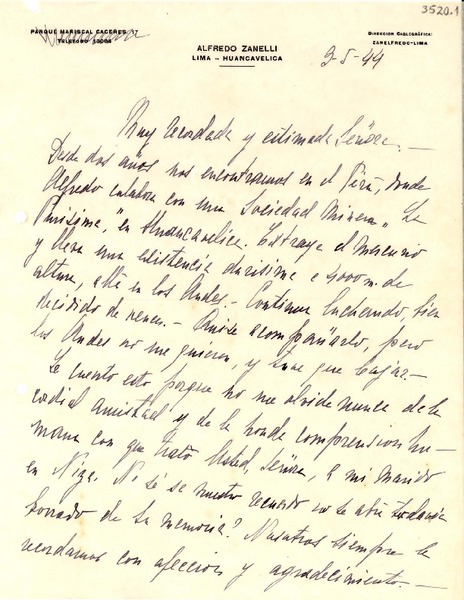 3520.1
PARQUE MARISCAL CACERES 17
TELEFONO
DIRECCION CABLOGRÁFICA:
ZANELFREDO-LIMA
ALFREDO ZANELLI
LIMA - HUANCAVELICA
9-5-44
Muy recordada y estimada Señora.—
Desde dos años nos encontramos en el Perú, donde
Alfredo colabora con una Sociedad Minera "La
Purisima," en Huancavelica. Extraye el mercurio
y lleva una existencia durisima a 4000 m. de
altura, allá en los Andes.- Continua luchando, bien
decidido de vencer.- Quise acompañarlo, pero
los Andes no me quieren, y tuve que bajar.-
Le cuento esto porque no me olvidé nunca de la
cordial amistad y de la honda comprension hu-
mana con que trató Usted, Señora, a mi marido
en Niza. No sé se nuestro recuerdo no se ha todavia
borrado de su memoria? Nosotros siempre la
recordamos con afeccion y agradecimiento.-